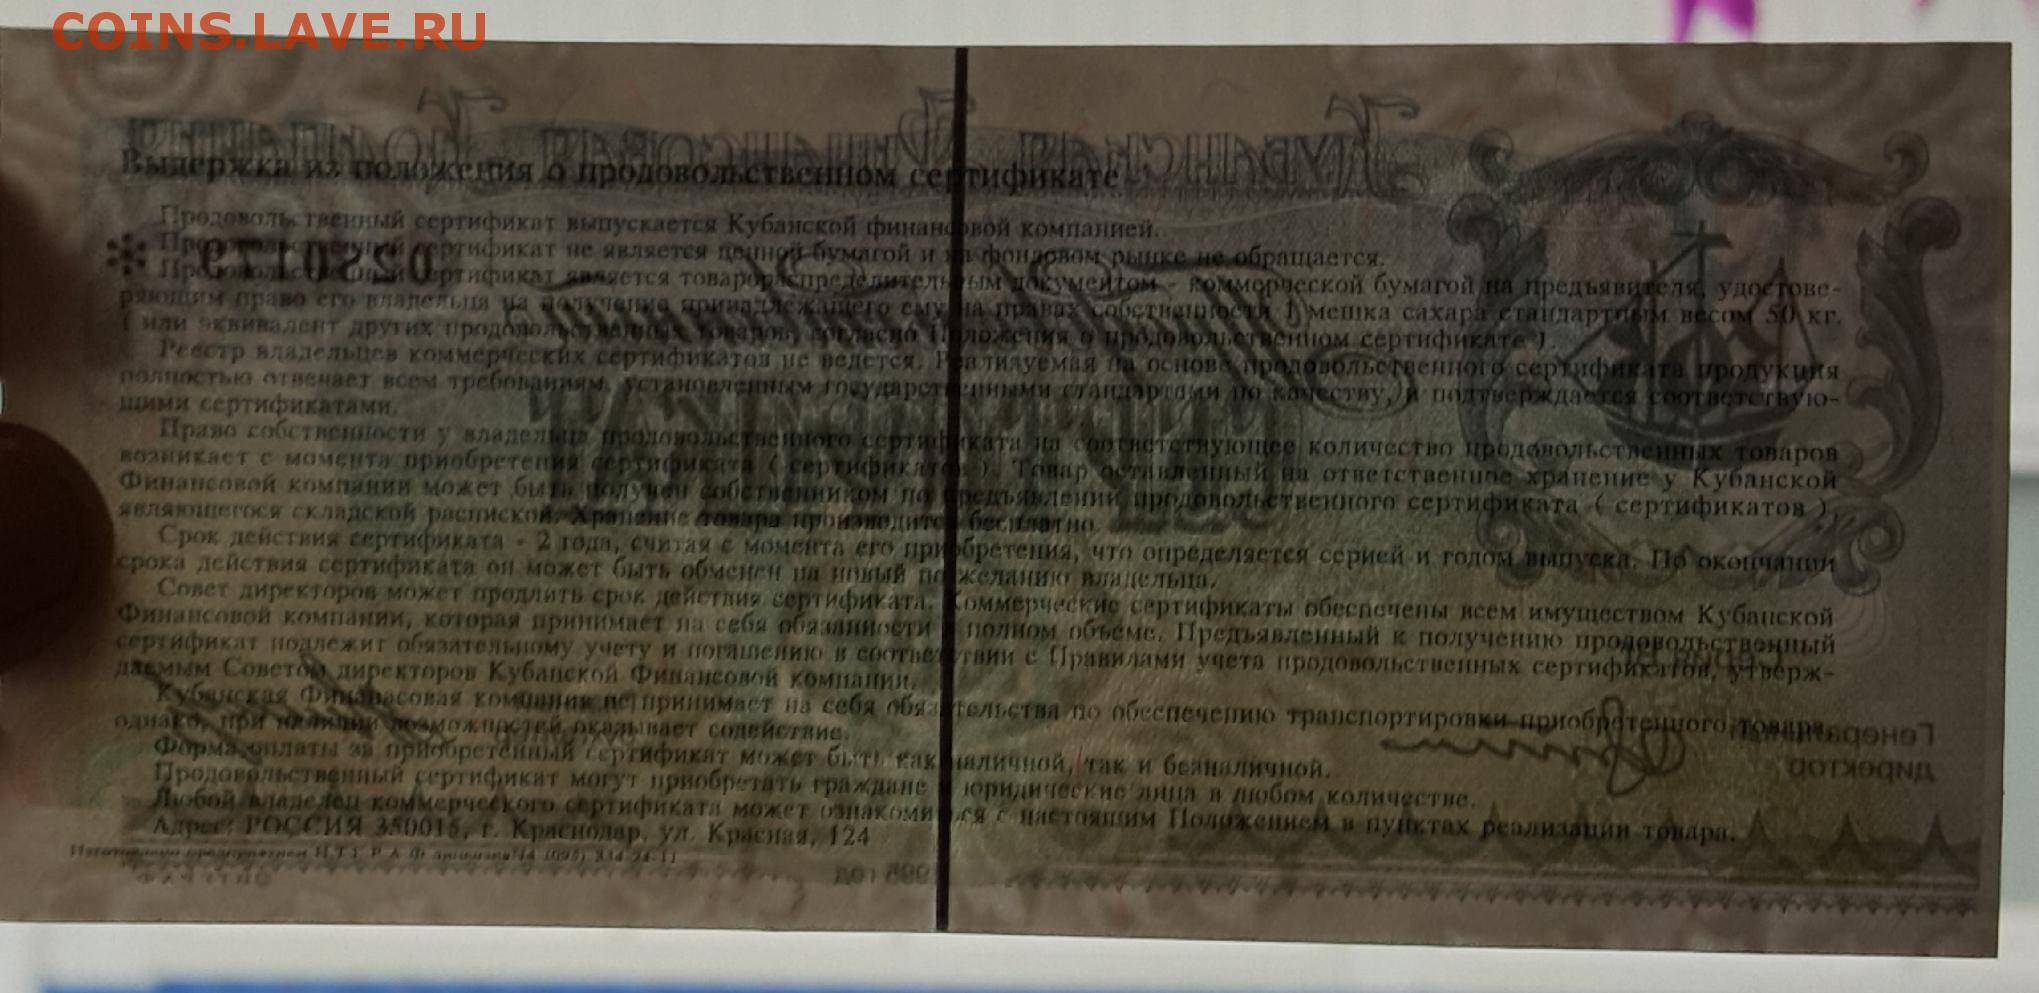 COINS.LAVE.RU
Выдержка из положения о продовольственном сертификате
Продовольственный сертификат выпускается Кубанской финансовой компанией.
Продовольственный сертификат не является ценной бумагой и на фондовом рынке не обращается.
Продовольственный сертификат является товарораспределительным документом - коммерческой бумагой на предъявителя, удостове-
ряющим право его владельца на получение принадлежащего ему на правах собственности 1 мешка сахара стандартным весом 50 кг.
( или эквивалент других продовольственных товаров, согласно Положения о продовольственном сертификате ) .
Реестр владельцев коммерческих сертификатов не ведется. Реализуемая на основе продовольственного сертификата продукция
полностью отвечает всем требованиям, установленным государственными стандартами по качеству, и подтверждается соответствую-
щими сертификатами.
Право собственности у владельца продовольственного сертификата на соответствующее количество продовольственных товаров
возникает с момента приобретения сертификата ( сертификатов ). Товар оставленный на ответственное хранение у Кубанской
Финансовой компании может быть получен собственником по предъявлении продовольственного сертификата ( сертификатов ),
являющегося складской распиской. Хранение товара производится бесплатно.
Срок действия сертификата - 2 года, считая с момента его приобретения, что определяется серией и годом выпуска. По окончании
срока действия сертификата он может быть обменен на новый по желанию владельца.
Совет директоров может продлить срок действия сертификата. Коммерческие сертификаты обеспечены всем имуществом Кубанской
Финансовой компании, которая принимает на себя обязанности в полном объеме. Предъявленный к получению продовольственный
сертификат подлежит обязательному учету и погашению в соответствии с Правилами учета продовольственных сертификатов, утверж-
даемым Советом директоров Кубанской Финансовой компании.
Кубанская Финансовая компания не принимает на себя обязательства по обеспечению транспортировки приобретенного товара,
однако, при наличии возможностей оказывает содействие.
Форма оплаты за приобретенный сертификат может быть как наличной, так и безналичной.
Продовольственный сертификат могут приобретать граждане и юридические лица в любом количестве.
Любой владелец коммерческого сертификата может ознакомиться с настоящим Положением в пунктах реализации товара.
Адрес: РОССИЯ 350015, г. Краснодар, ул. Красная, 124
Кубанская Финансовая Компания
0280179
СЕРТИФИКАТ
КФК
Генеральный
директор